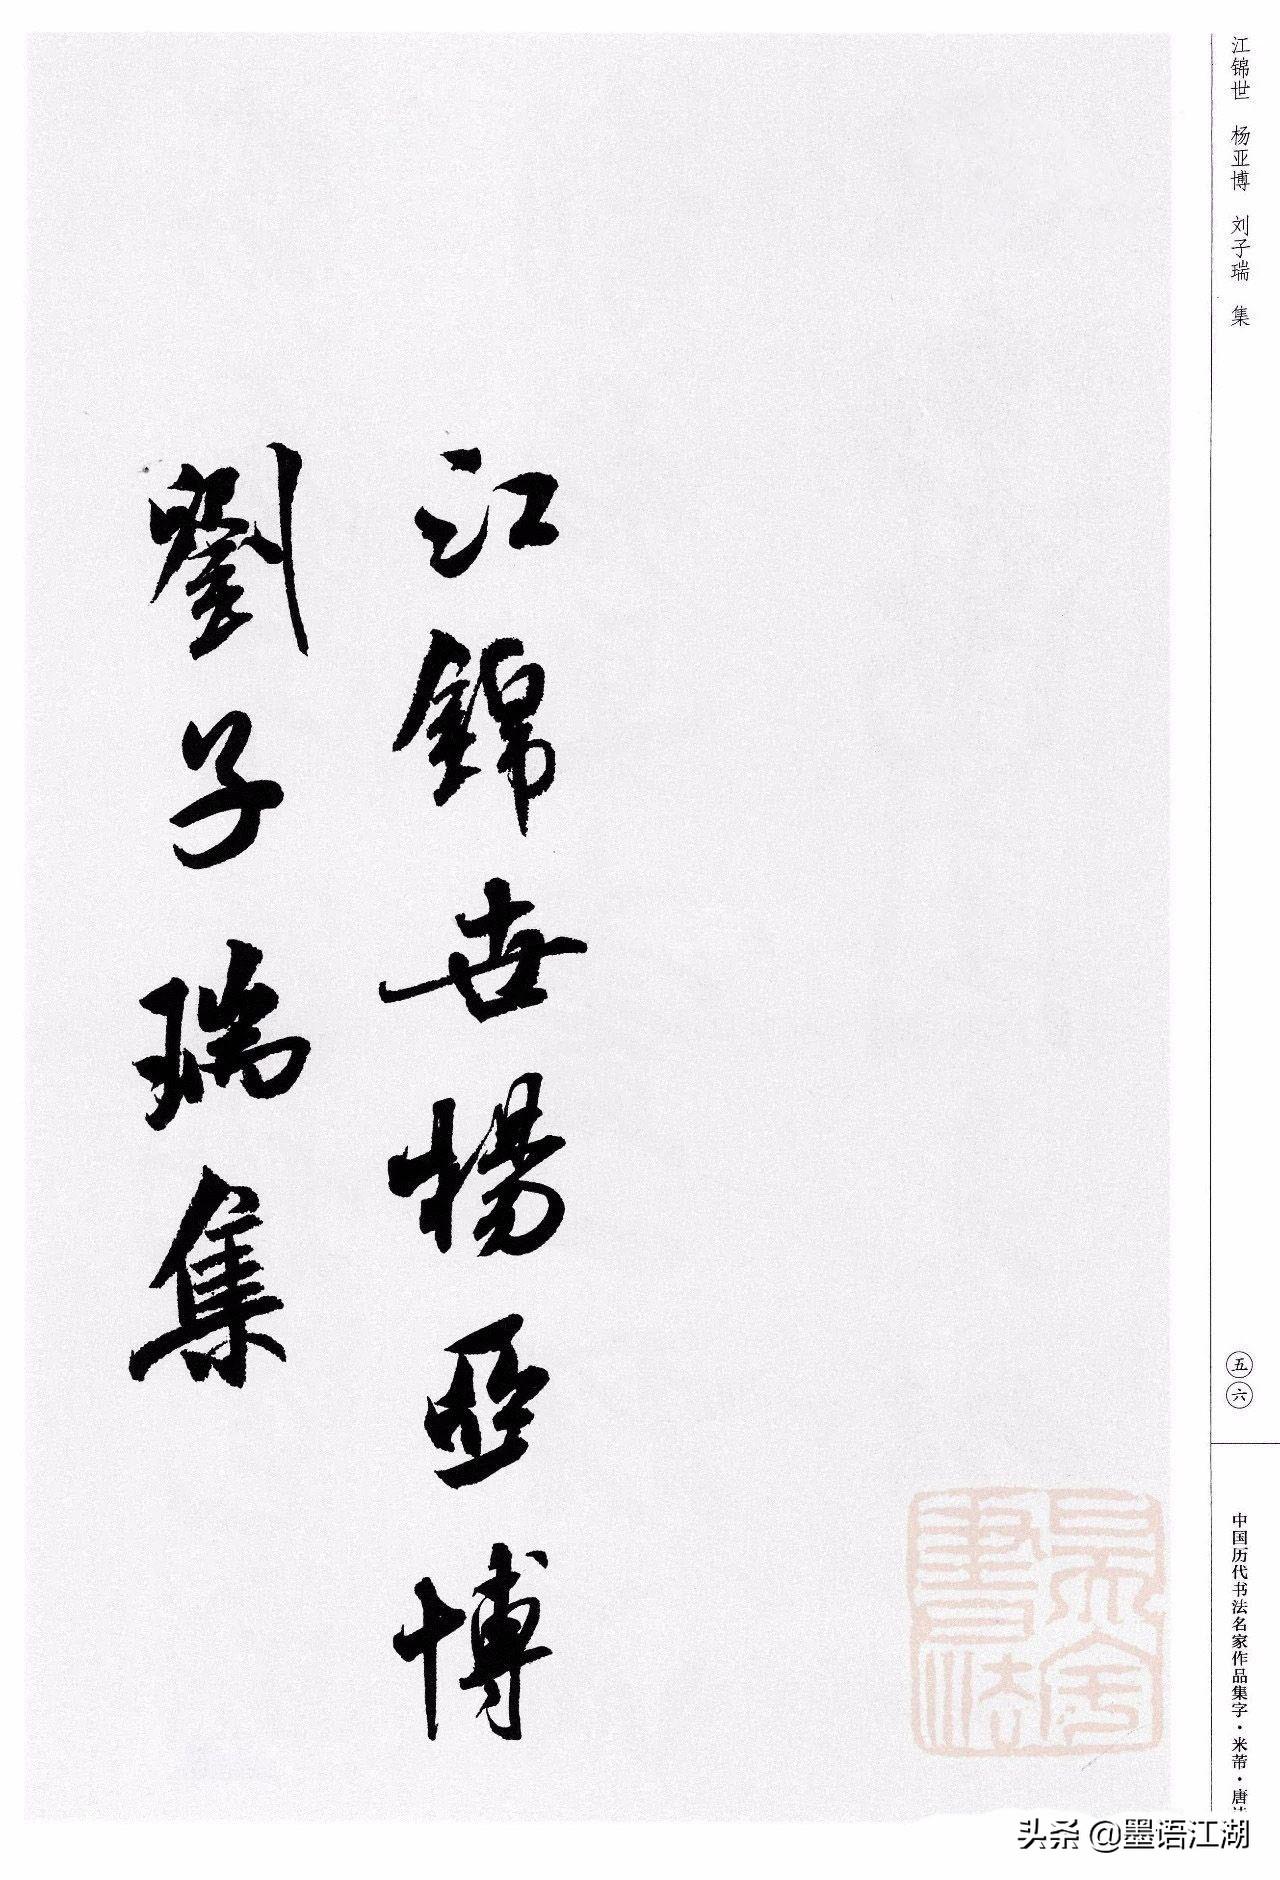 江锦世 杨亚博 刘子瑞 集
江錦世楊亞博
劉子瑞集
五六
中国历代书法名家作品集字·米芾·唐
头条 @墨语江湖